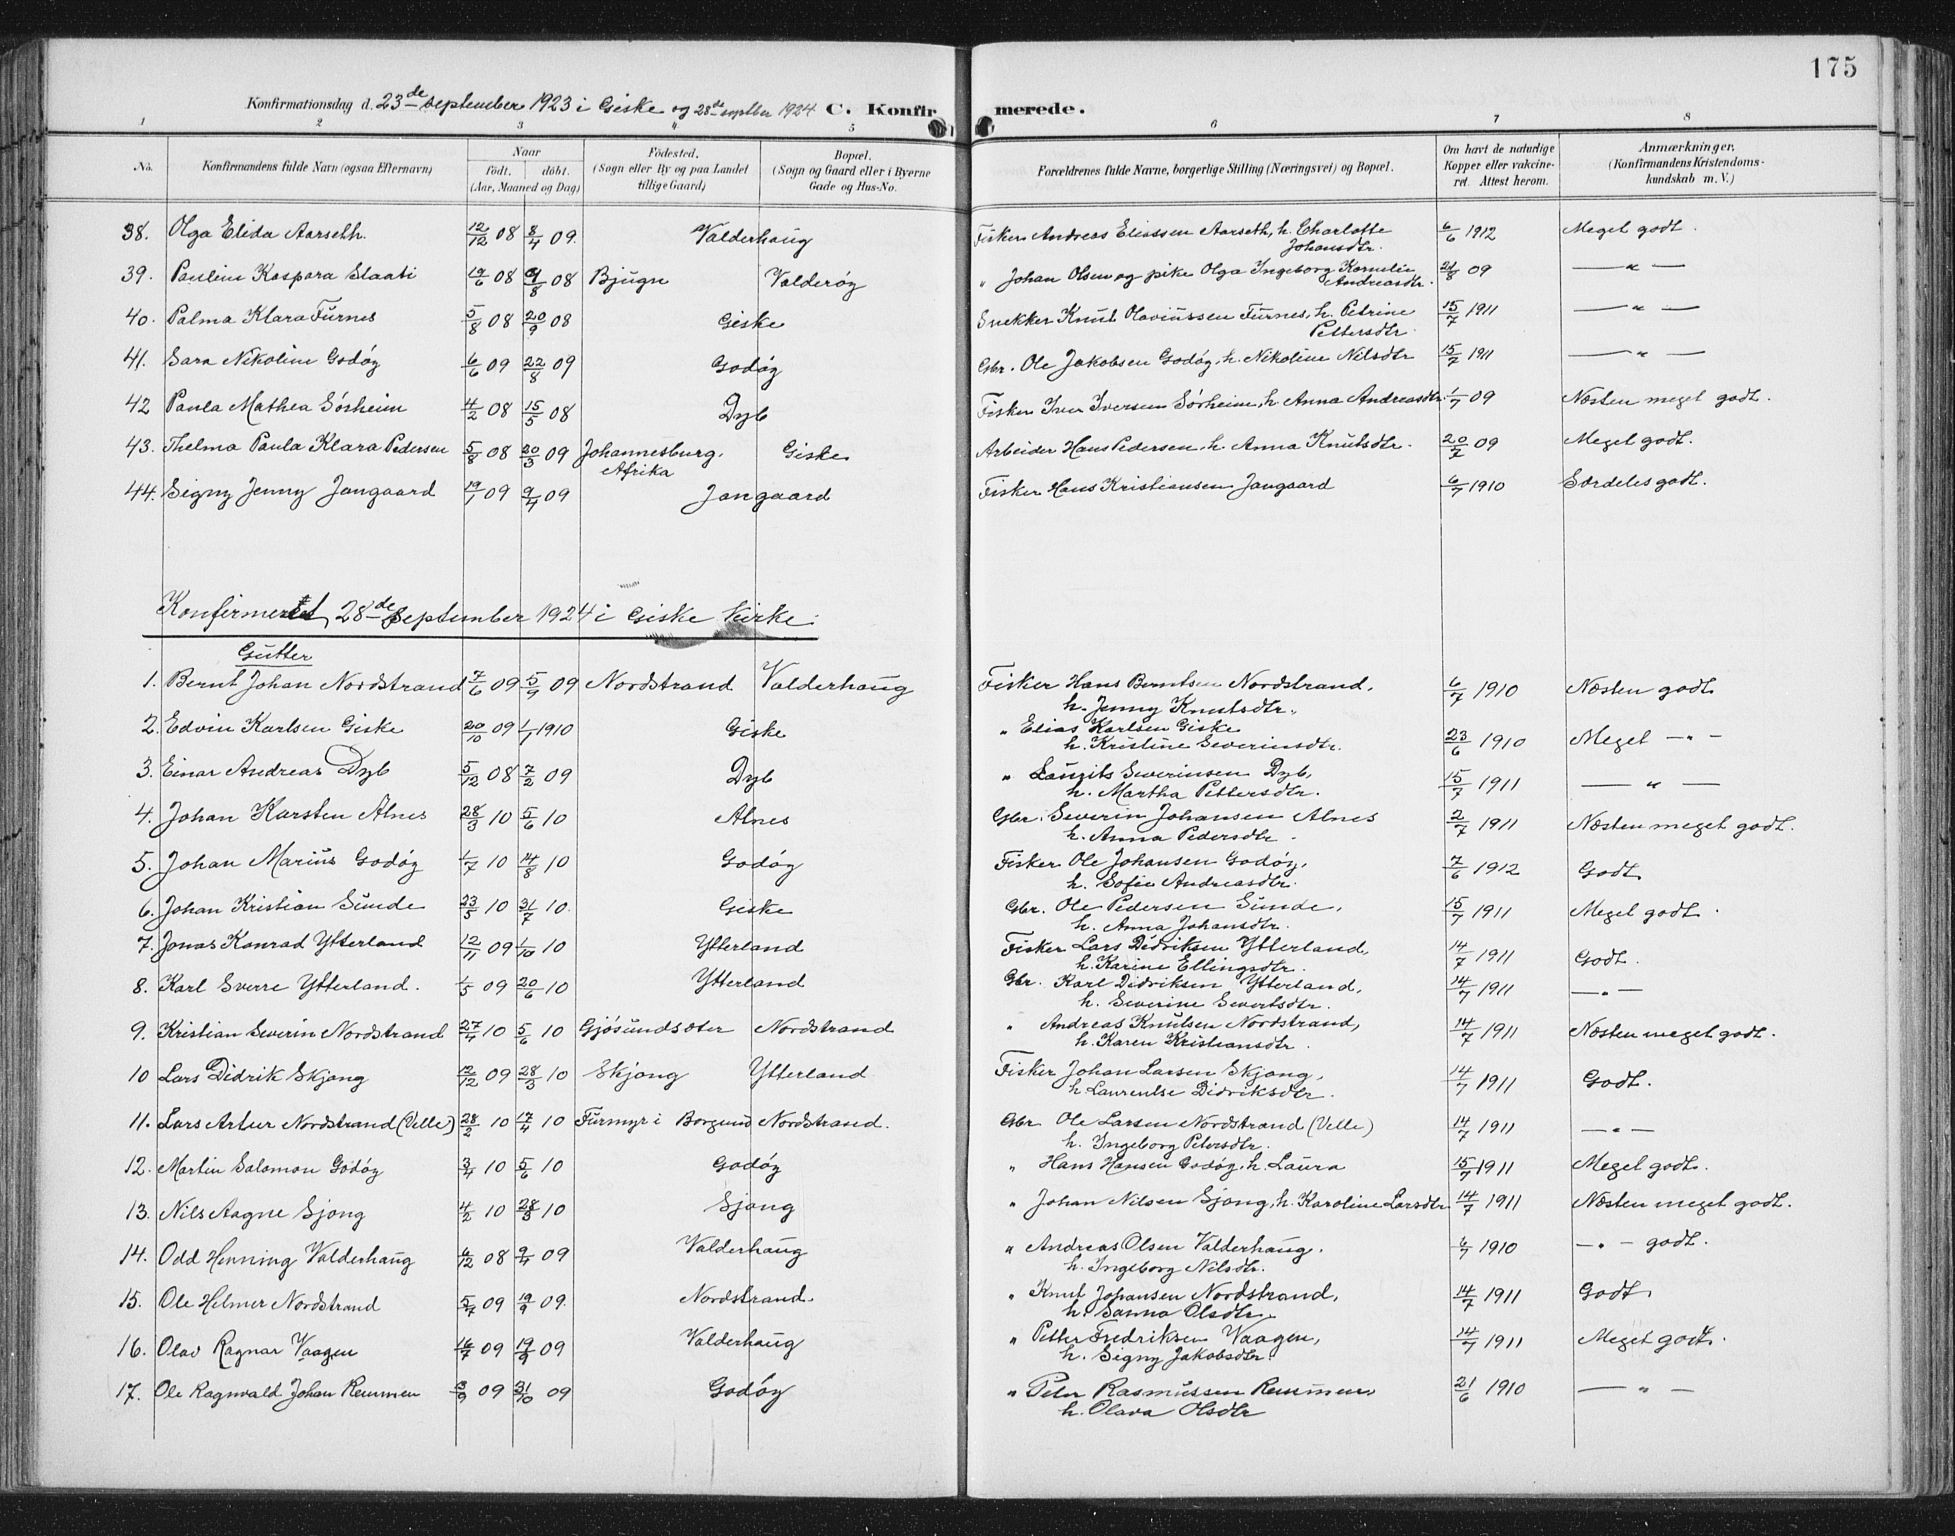 175
Konfirmationsdag d. 23de september 1923 i Giske og 28de septbr 1924 C. Konfirmerede.
1 2 3 4 5 6 7 8
No. Konfirmandens fulde Navn (ogsaa Efternavn) Naar födt. döbt. (Aar, Maaned og Dag) Födested. (Sogn eller By og paa Landet tillige Gaard) Bopæl. (Sogn og Gaard eller i Byerne Gade og Hus-No. Forældrenes fulde Navne, borgerlige Stilling (Næringsvei) og Bopæl. Om havt de naturlige Kopper eller vakcineret. Attest herom. Anmærkninger. (Konfirmandens Kristendomskundskab m. V.)
38. Olga Elida Aarseth. 12/12 08 8/4 09. Valderhaug Fisker Andreas Eliassen Aarseth, h. Charlotte Johansdtr. 6/6 1912 Meget godt.
39. Pauline Kaspara Slaati 19/6 08 9/8 08 Bjugn Valderøy " Johan Olsen og pike Olga Ingeborg Kornelie Andreasdtr. 21/8 09 — " —
40. Palma Klara Furnes 5/8 08 20/9 08 Giske Snekker Knut Olaviussen Furnes, h. Petrine Pettersdtr. 15/7 1911 — " —
41. Sara Nikoline Godøy 6/6 09 22/8 09 Godøy Gbr. Ole Jakobsen Godøy, h. Nikoline Nilsdtr 15/7 1911 — " —
42 Paula Mathea Sørheim 4/2 08 15/5 08 Dyb Fisker Iver Iversen Sørheim, h. Anna Andreasdtr. 1/7 09 Næsten meget godt.
43. Thelma Paula Klara Pedersen 5/8 08 20/3 09 Johannesburg, Afrika Giske Arbeider Hans Pedersen, h. Anna Knutsdtr. 20/7 09 Meget godt.
44. Signy Jenny Jangaard 19/1 09 9/4 09 Jangaard Fisker Hans Kristiansen Jangaard 6/7 1910 Særdeles godt.
Konfirmeret 28de september 1924 i Giske Kirke.
Gutter
1. Bernt Johan Nordstrand 7/6 09 5/9 09 Nordstrand Valderhaug Fisker Hans Berntsen Nordstrand, h. Jenny Knutsdtr. 6/7 1910 Næsten godt
2. Edvin Karlsen Giske 20/10 09 1/1 1910 Giske " Elias Karlsen Giske h. Kristine Severinsdtr. 23/6 1910 Meget — " —
3. Einar Andreas Dyb 5/12 08 7/2 09 Dyb " Laurits Severinsen Dyb, h. Martha Pettersdtr. 15/7 1911 — " —
4. Johan Karsten Alnes 28/3 10 5/6 10 Alnes Gbr. Severin Johansen Alnes h. Anna Pedersdtr. 2/7 1911 Næsten meget godt.
5. Johan Marius Godøy 1/7 10 14/8 10 Godøy Fisker Ole Johansen Godøy, h. Sofie Andreasdtr. 7/6 1912 Godt
6. Johan Kristian Sunde 23/5 10 31/7 10. Giske Gbr. Ole Pedersen Sunde, h. Anna Johansdtr. 15/7 1911 Meget godt.
7. Jonas Konrad Ytterland 12/11 09 1/10 10 Ytterland Fisker Lars Didriksen Ytterland, h. Karine Ellingsdtr. 14/7 1911 Godt.
8. Karl Sverre Ytterland. 1/5 09 20/6 10 Ytterland Gbr. Karl Didriksen Ytterland, h. Severine Severtsdtr. 14/7 1911 — " —
9. Kristian Severin Nordstrand 27/4 10 5/6 10 Gjøsundsæter Nordstrand " Andreas Knutsen Nordstrand, h. Karen Kristiansdtr. 14/7 1911 Næsten meget godt.
10 Lars Didrik Skjong 12/12 09 28/3 10 Skjong Ytterland Fisker Johan Larsen Skjong, h Laurentse Didriksdtr. 14/7 1911 Godt.
11. Lars Artur Nordstrand (Velle) 28/2 10 17/4 10 Furmyr i Borgund Nordstrand. Gbr. Ole Larsen Nordstrand (Velle) h. Ingeborg Petersdtr. 14/7 1911 — " —
12. Martin Salomon Godøy 3/4 10 5/6 10 Godøy " Hans Hansen Godøy, h. Laura 15/7 1911 Meget godt.
13. Nils Aagne Sjong 4/2 10 28/3 10 Sjong " Johan Nilsen Sjong, h. Karoline Larsdtr 14/7 1911 Næsten meget godt.
14. Odd Henning Valderhaug 6/12 08 9/4 09 Valderhaug " Andreas Olsen Valderhaug. h. Ingeborg Nilsdtr. 6/7 1910 — " — godt.
15. Ole Helmer Nordstrand 5/7 09 19/9 09. Nordstrand. " Knut Johansen Nordstrand, h. Sanna Olsdtr. 14/7 1911 Godt.
16. Olav Ragnar Vaagen 16/7 09 19/9 09 Valderhaug " Petter Fredriksen Vaagen, h. Signy Jakobsdtr. 14/7 1911 Meget godt.
17. Ole Ragnvald Johan Remmen 3/9 09 31/10 09 Godøy " Peter Rasmussen Remmen h. Olava Olsdtr 21/6 1910 — " —